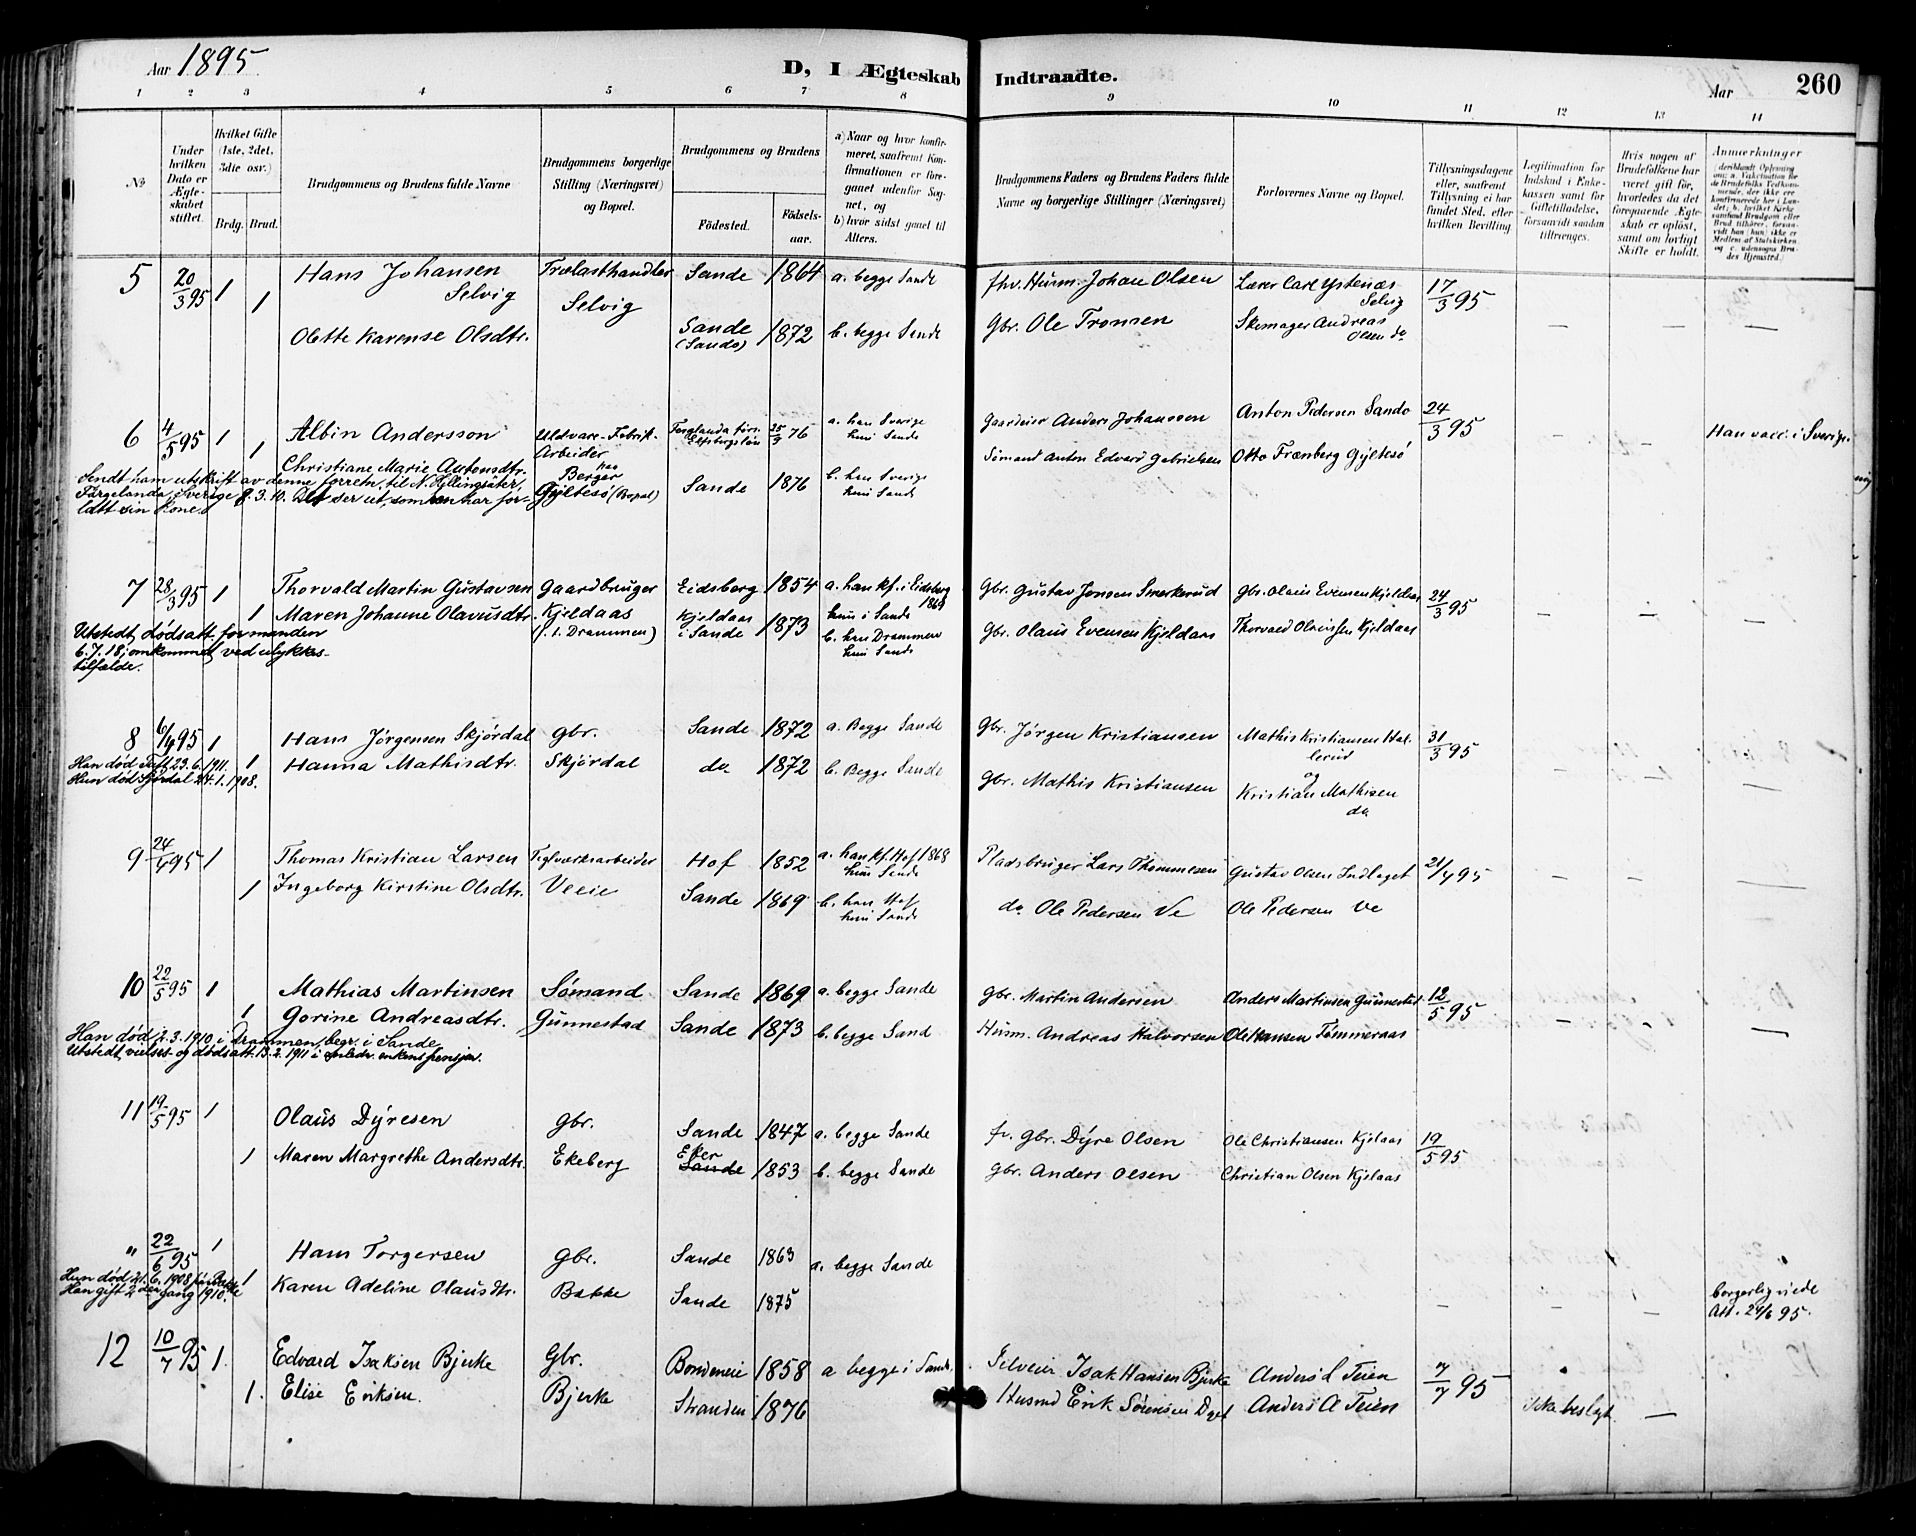 Aar 1895.
D, I Ægteskab Indtraadte.
Aar
260
1 2 3 4 5 6 7 8 9 10 11 12 13 14
No
Under hvilken Dato er Ægteskabet stiftet.
Hvilket Gifte (1ste, 2det, 3die osv.)
Brdg. Brud.
Brudgommens og Brudens fulde Navne
Brudgommens borgerlige Stilling (Næringsvei) og Bopæl.
Brudgommens og Brudens
Födested.
Födselsaar.
a) Naar og hvor konfirmeret, saafremt Konfirmationen er foregaaet udenfor Sognet, og
b) hvor sidst gaaet til Alters.
Brudgommens Faders og Brudens Faders fulde Navne og borgerlige Stillinger (Næringsvei)
Forlovernes Navne og Bopæl.
Tillysningsdagene eller, saafremt Tillysning ei har fundet Sted, efter hvilken Bevilling
Legitimation for Indskud i Enkekassen samt for Giftetilladelse, forsaavidt saadan tiltrænges.
Hvis nogen af Brudefolkene har været gift för, hvorledes da det foregaaende Ægteskab er oplöst, samt om lovligt Skifte er holdt.
Anmærkninger
5 20/3 95 1 Hans Johansen Trælasthandler Sande 1864 a. begge Sande fhv. Husm. Johan Olsen Lærer Carl Ystenæs 17/3 95
1 Selvig Selvig Selvig
Olette Karense Olsdtr. Sande (Sando) 1872 b. begge Sande Gbr. Ole Tronsen Skomager Andreas Olsen do — — —
6 4/5 95 1 Albin Andersson Uldvare-Fabrik-Arbeider 25/3 76 a. han Sverige hun Sande Gaardeier Anders Johansson Anton Pedersen Sando 24/3 95 Han vacc. i Sverige.
1 Christiane Marie Antonsdtr. Berger Gyltesö (Bopæl) Sande 1876 b. han Sverige hun Sande Sömand Anton Edvard Gabrielsen Otto Frænberg Gyltesö
Sendt ham utskrift av denne forretn. til N. Hellingsäter,
Färgelanda, Sverige 8.3.10. Det ser ut, som han har for-
latt sin kone.
7 28/3 95 1 Thorvald Martin Gustavsen Gaardbruger Eidsberg 1854 a. han kf. i Eidsberg 1869 hun i Sande Gbr. Gustav Jonsen Smerkerud Gbr. Olaus Evensen Kjeldaas 24/3 95 — — —
1 Maren Johanne Olavusdtr. Kjeldaas (f. t. Drammen) Kjeldaas i Sande 1873 b. han Drammen hun Sande Gbr. Olaus Evensen Kjeldaas Thorvald Olaussen Kjeldaas
Utstedt dödsatt. for manden
6.7.18; omkommet ved ulykkes-
tilfælde.
8 6/4 95 1 Hans Jörgensen Skjördal Gbr. Sande 1872 a. Begge Sande Gbr. Jörgen Kristiansen Mathis Kristiansen Hallerud 31/3 95
1 Hanna Mathisdtr. Skjördal do 1872 b. Begge Sande Gbr. Mathis Kristiansen og Kristian Mathisen do —
Han död 23.6.1911.
Hun död Sjördal 24.1.1908.
9 24/4 95 1 Thomas Kristian Larsen Teglværksarbeider Hof 1852 a. han kf. Hof 1868 hun Sande Pladsbruger Lars Thommesen Gustav Olsen Indlaget 21/4 95 — — —
1 Ingeborg Kirstine Olsdtr. Veeie Sande 1869 b. han Hof hun Sande do Ole Pedersen Ve Ole Pedersen Ve
10 22/5 95 1 Mathias Martinsen Sömand Sande 1869 a. begge Sande Gbr. Martin Andersen Anders Martinsen Gunnestad 12/5 95 — — —
1 Gorine Andreasdtr. Gunnestad Sande 1873 b. begge Sand Husm. Andreas Halvorsen Ole Hansen Tömmeraas
Han död 12.3.1910 i Drammen, begr. i Sande.
Utstedt vielses og dödsatt. 13.2.1911 i anledn. enkens pensjon.
11 19/5 95 1 Olaüs Dÿresen Gbr. Sande 1847 a. begge Sande fv. Gbr. Dÿre Olsen Ole Christiansen Kjelaas 19/5 95
1 Maren Margrethe Andersdtr. Ekeberg Eker Sande 1853 b. begge Sande Gbr. Anders Olsen Christian Olsen Kjelaas
" 22/6 95 1 Hans Torgersen Gbr. Sande 1863 a. begge Sande
1 Karen Adeline Olausdtr. Bakke Sande 1875 — — borgerlig viede Att. 24/6 95.
Hun död 21.6.1908 paa Bakke
Han gift 2den gang 1910.
12 10/7 95 1. Edvard Isaksen Bjerke Gbr. Bondeneie 1858 a begge i Sande. Selveier Isak Hansen Bjerke Anders L Teien 7/7 95
1. Elise Eriksen. Bjerke Stranden 1876 Husmd Erik Sörensen Anders A Teien Ikke beslegt. —